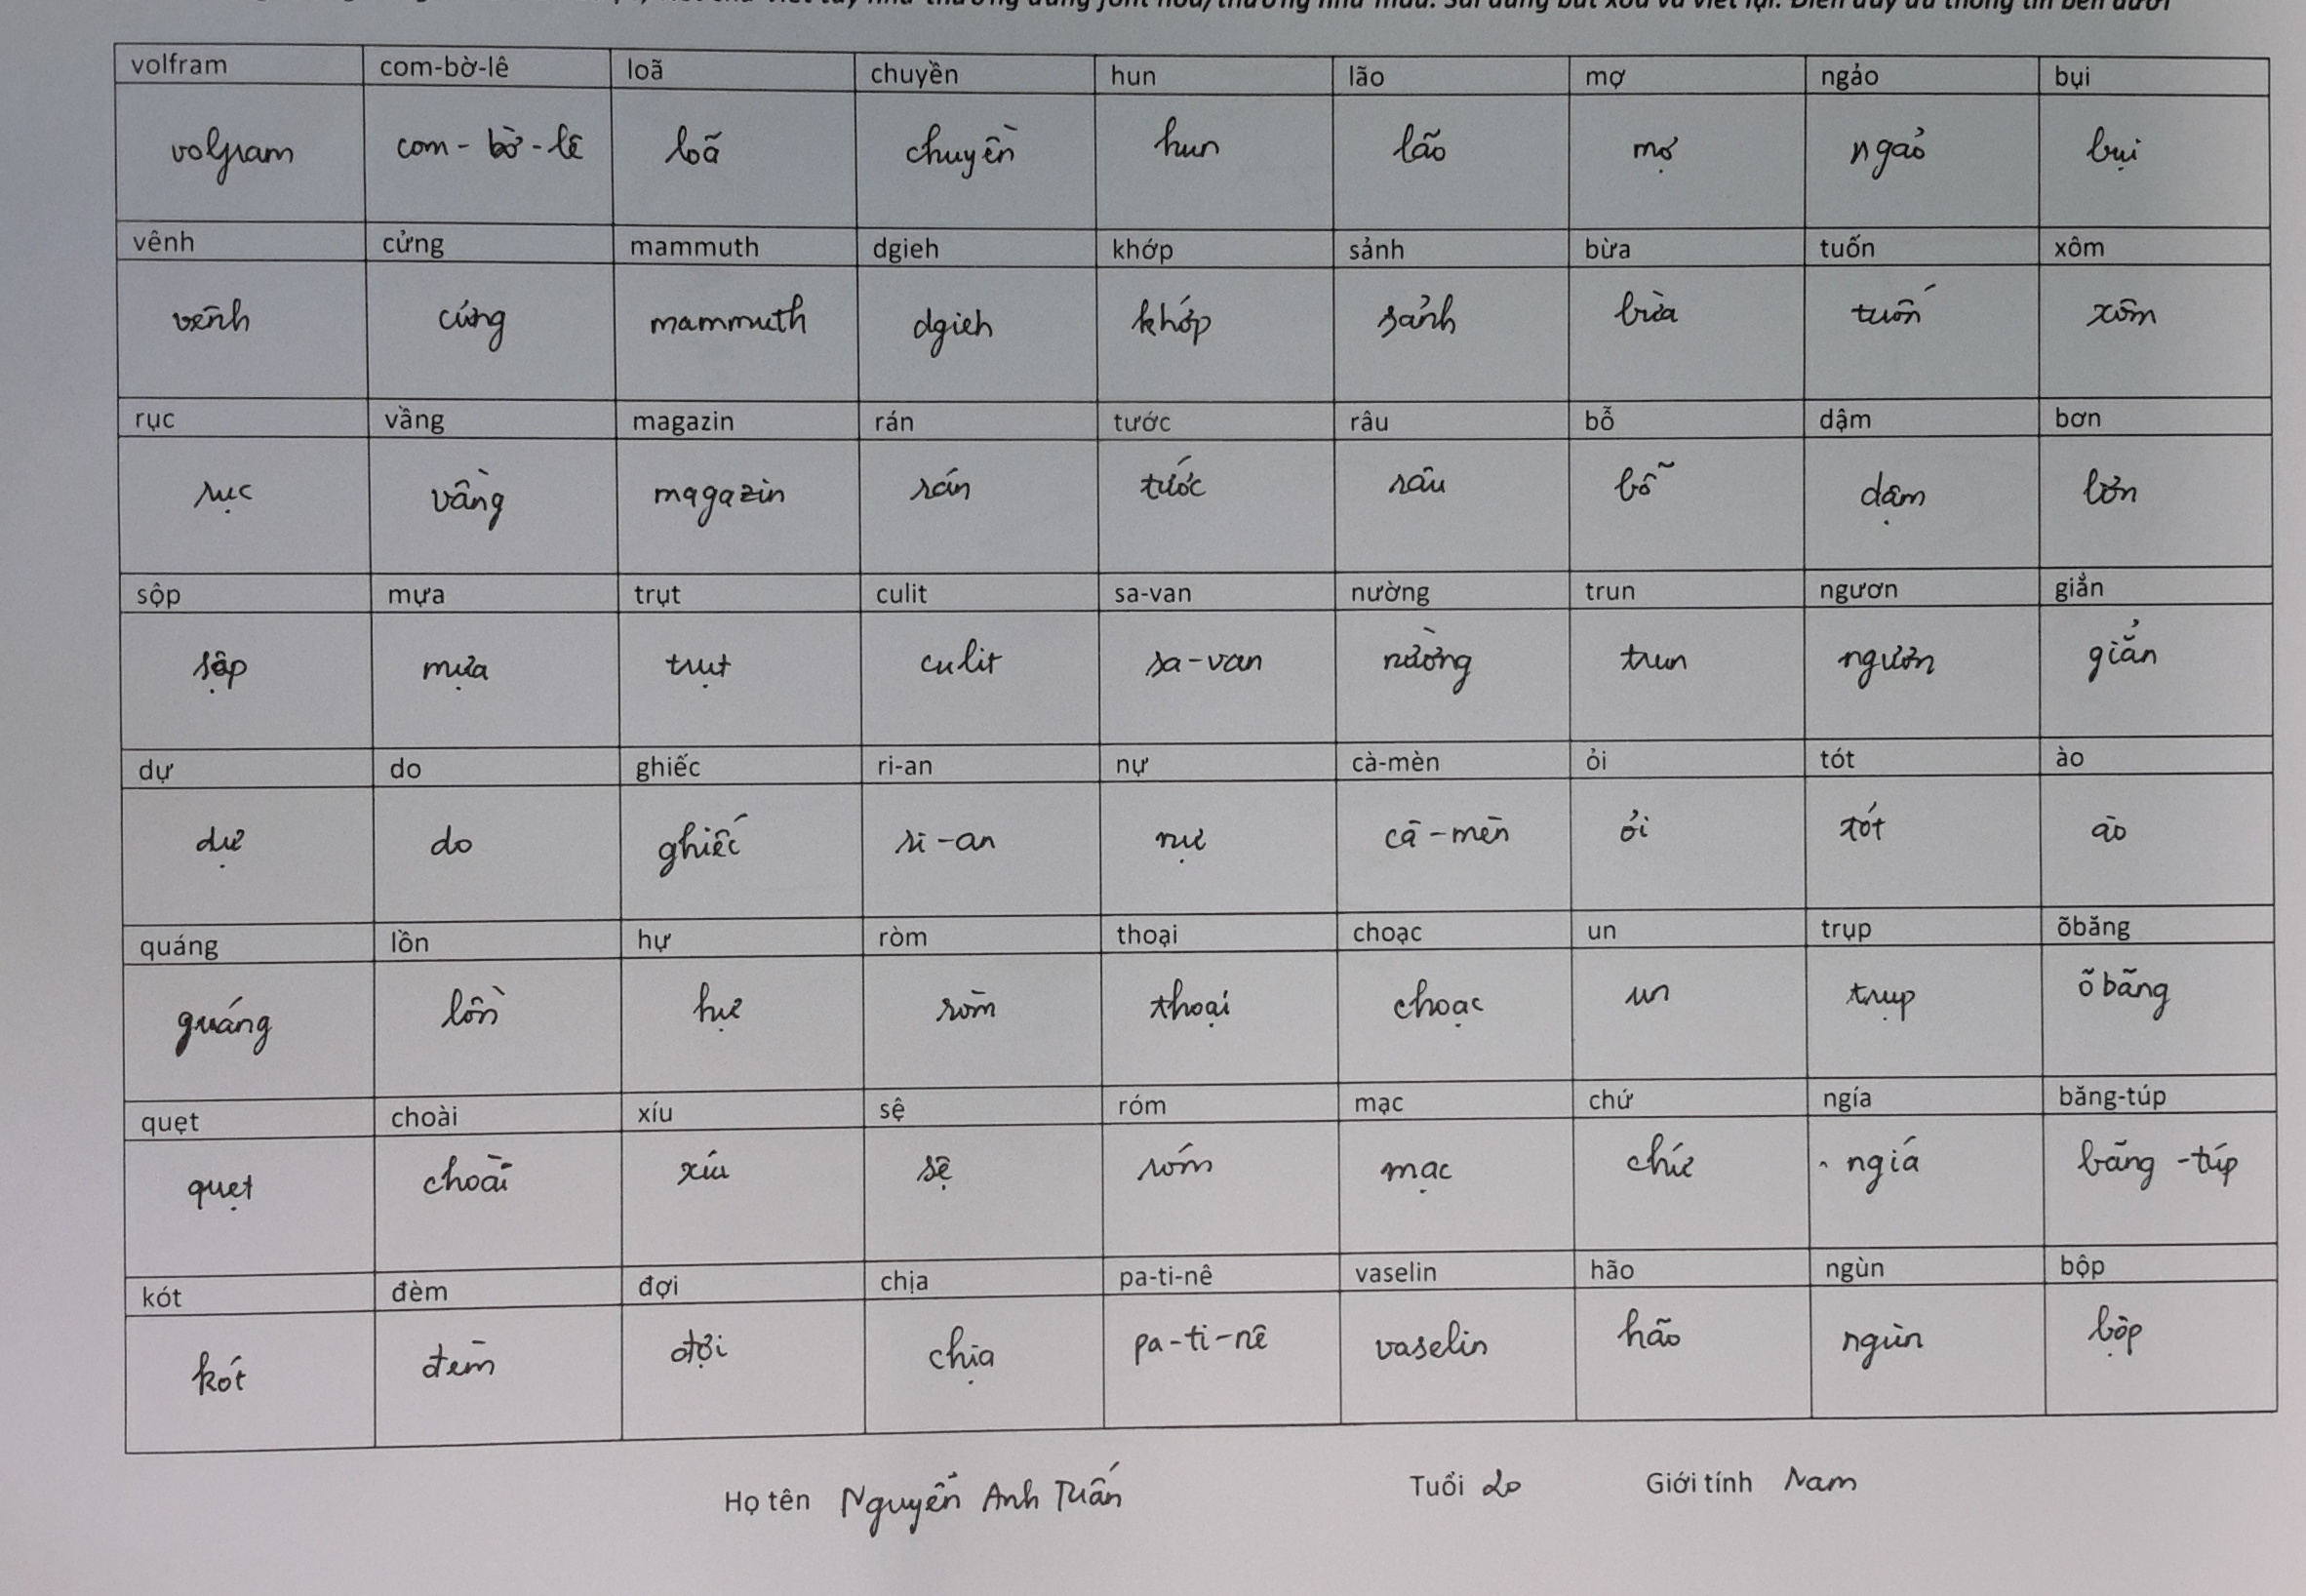 viết chữ viết tay như thường dùng font hoa/thường như mẫu. Sai dùng bút xoá và viết lại. Điền đầy đủ thông tin bên dưới
volfram com-bờ-lê loã chuyền hun lão mợ ngảo bụi
volfram com-bờ-lê loã chuyền hun lão mợ ngảo bụi
vênh cửng mammuth dgieh khớp sảnh bừa tuốn xôm
vênh cửng mammuth dgieh khớp sảnh bừa tuốn xôm
rục vầng magazin rán tước râu bỗ dậm bơn
rục vầng magazin rán tước râu bỗ dậm bơn
sộp mựa trụt culit sa-van nường trun ngươn giẳn
sộp mựa trụt culit sa-van nường trun ngươn giẳn
dự do ghiếc ri-an nự cà-mèn ỏi tót ào
dự do ghiếc ri-an nự cà-mèn ỏi tót ào
quáng lồn hự ròm thoại choạc un trụp õbăng
quáng lồn hự ròm thoại choạc un trụp õbăng
quẹt choài xíu sệ róm mạc chứ ngía băng-túp
quẹt choài xíu sệ róm mạc chứ ngía băng-túp
kót đèm đợi chịa pa-ti-nê vaselin hão ngùn bộp
kót đèm đợi chịa pa-ti-nê vaselin hão ngùn bộp
Họ tên Nguyễn Anh Tuấn Tuổi 20 Giới tính Nam